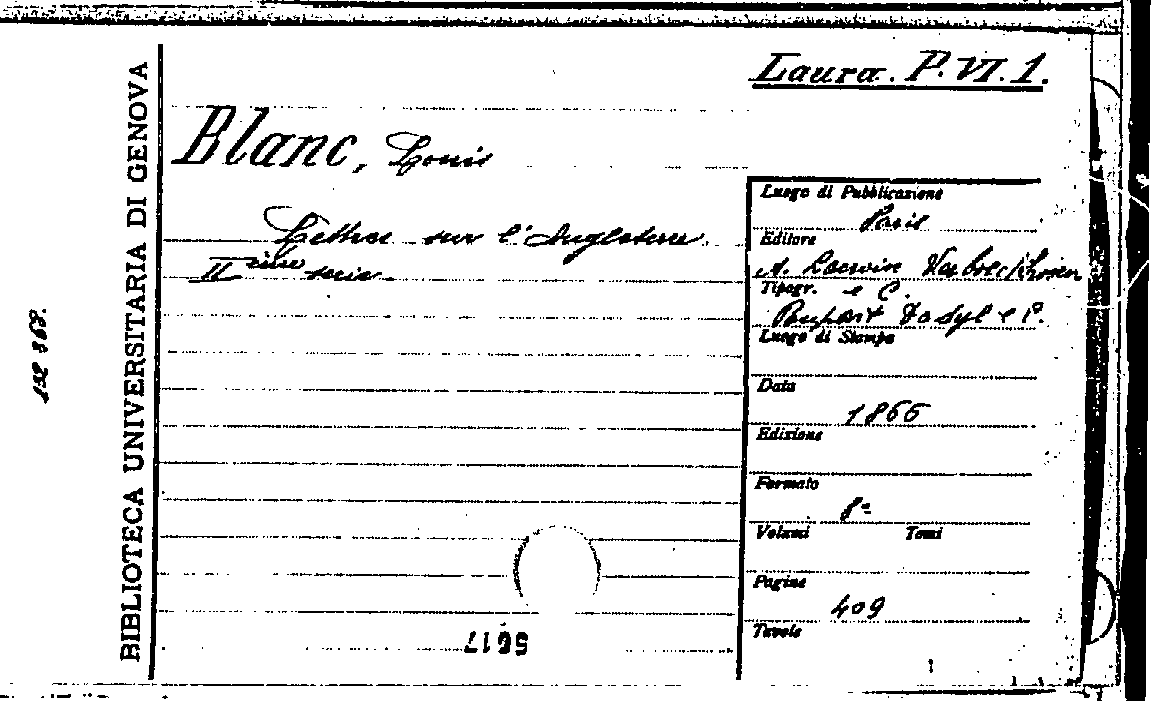 Laura. P. VI. 1.
Blanc, Louis
Lettres sur l'Angleterre.
IIème serie.
BIBLIOTECA UNIVERSITARIA DI GENOVA
Luogo di Pubblicazione
Paris
Editore
A. Lacroix Verboeckhoven
e C.
Tipogr.
Poupart Davyl e C.
Luogo di Stampa
Data
1866
Edizione
Formato
8º
Volumi Tomi
Pagine
409
Tavole
5617